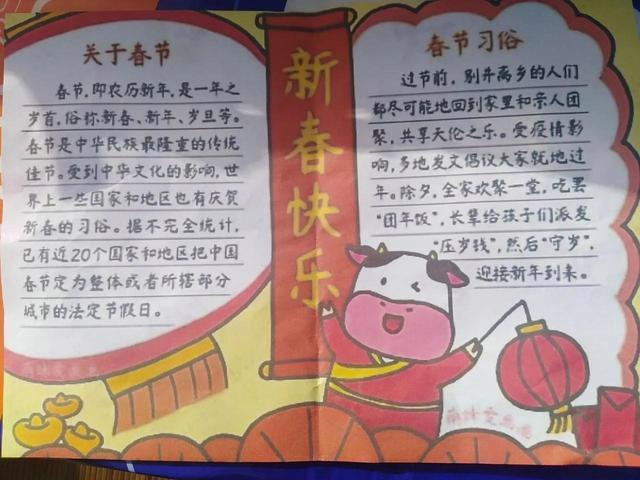 关于春节
春节，即农历新年，是一年之
岁首，俗称新春、新年、岁旦等。
春节是中华民族最隆重的传统
佳节。受到中华文化的影响，世
界上一些国家和地区也有庆贺
新春的习俗。据不完全统计，
已有近20个国家和地区把中国
春节定为整体或者所辖部分
城市的法定节假日。
新春快乐
春节习俗
过节前，别井离乡的人们
都尽可能地回到家里和亲人团
聚，共享天伦之乐。受疫情影
响，多地发文倡议大家就地过
年。除夕，全家欢聚一堂，吃罢
“团年饭”，长辈给孩子们派发
“压岁钱”，然后“守岁”，
迎接新年到来。